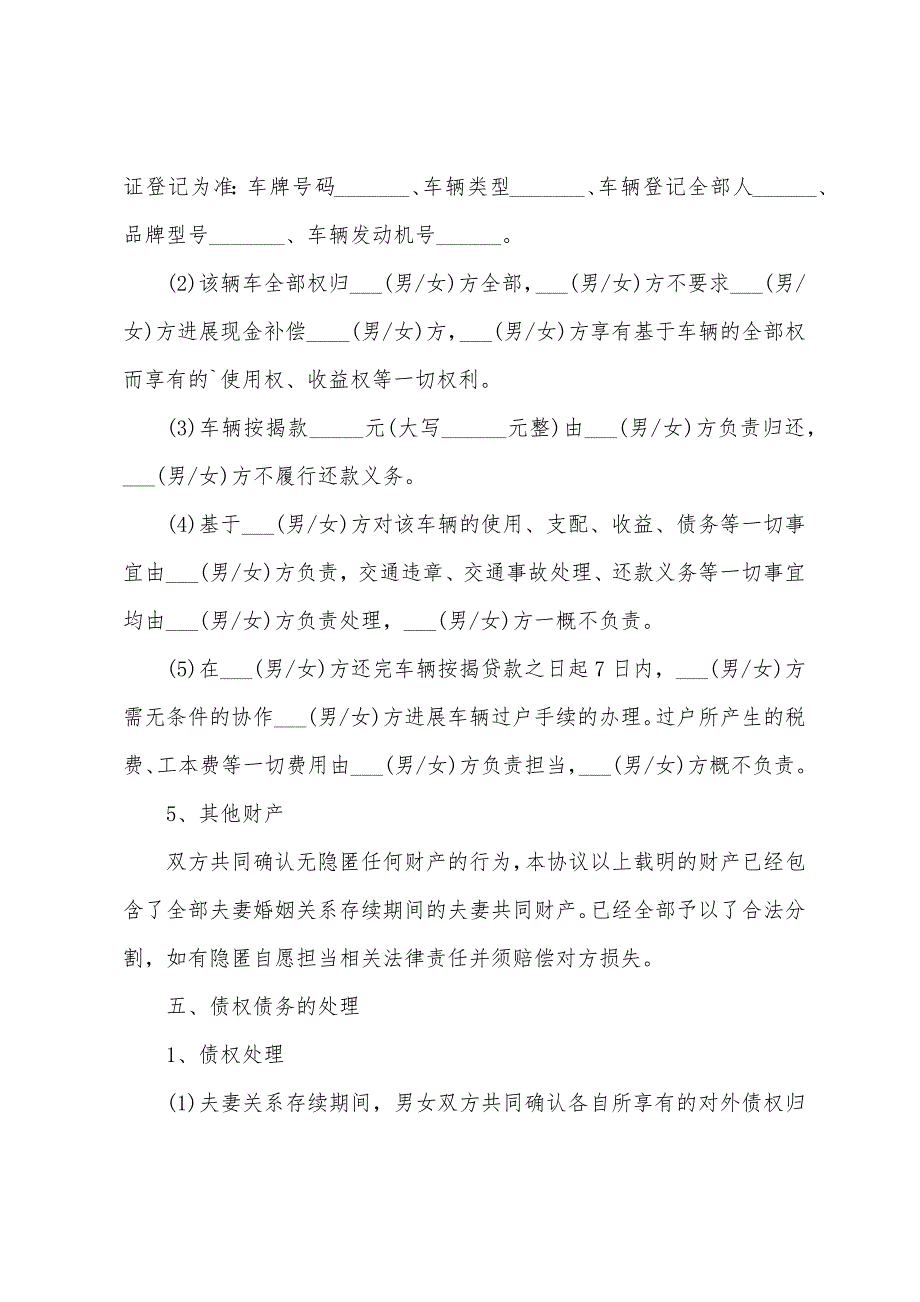 证登记为准：车牌号码_______、车辆类型_______、车辆登记全部人______、
品牌型号_______、车辆发动机号______。
(2)该辆车全部权归___(男/女)方全部，___(男/女)方不要求___(男/
女)方进展现金补偿____(男/女)方，___(男/女)方享有基于车辆的全部权
而享有的`使用权、收益权等一切权利。
(3)车辆按揭款_____元(大写______元整)由___(男/女)方负责归还，
___(男/女)方不履行还款义务。
(4)基于___(男/女)方对该车辆的使用、支配、收益、债务等一切事
宜由___(男/女)方负责，交通违章、交通事故处理、还款义务等一切事宜
均由___(男/女)方负责处理，___(男/女)方一概不负责。
(5)在___(男/女)方还完车辆按揭贷款之日起7日内，___(男/女)方
需无条件的协作___(男/女)方进展车辆过户手续的办理。过户所产生的税
费、工本费等一切费用由___(男/女)方负责担当，___(男/女)方概不负责。
5、其他财产
双方共同确认无隐匿任何财产的行为，本协议以上载明的财产已经包
含了全部夫妻婚姻关系存续期间的夫妻共同财产。已经全部予以了合法分
割，如有隐匿自愿担当相关法律责任并须赔偿对方损失。
五、债权债务的处理
1、债权处理
(1)夫妻关系存续期间，男女双方共同确认各自所享有的对外债权归